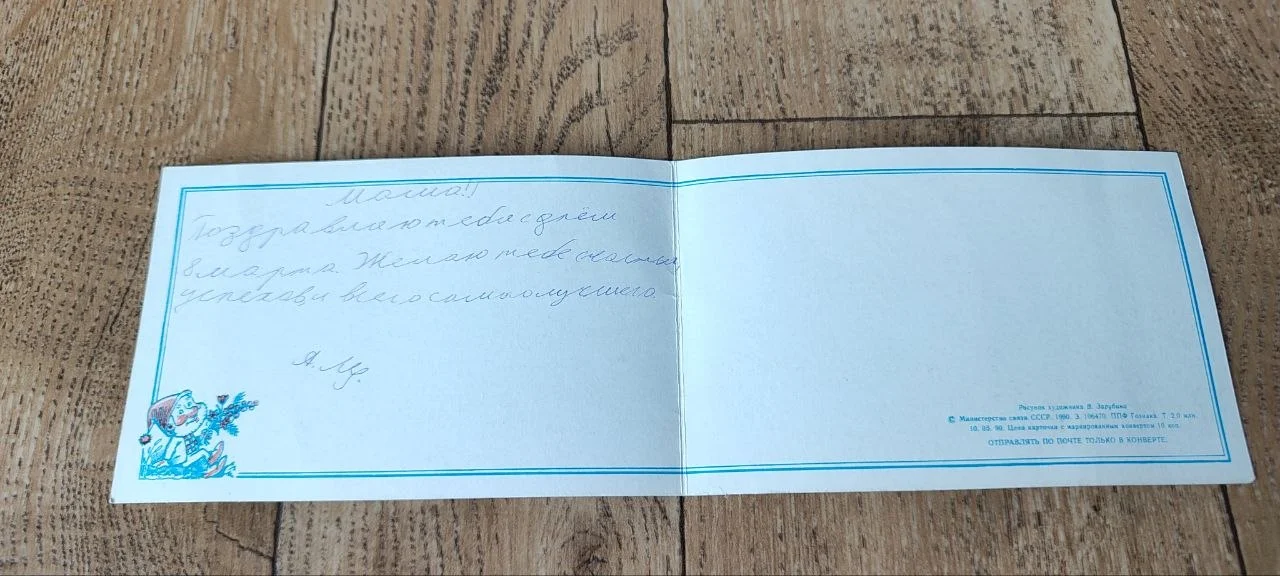 Мама!!
Поздравляю тебя с днём
8 марта. Желаю тебе счастья,
успехов и всего самого лучшего.
Рисунок художника В. Зарубина
© Министерство связи СССР. 1990. З. 106470. ППФ Гознака. Т. 2,0 млн.
10. 05. 90. Цена карточки с маркированным конвертом 10 коп.
ОТПРАВЛЯТЬ ПО ПОЧТЕ ТОЛЬКО В КОНВЕРТЕ.